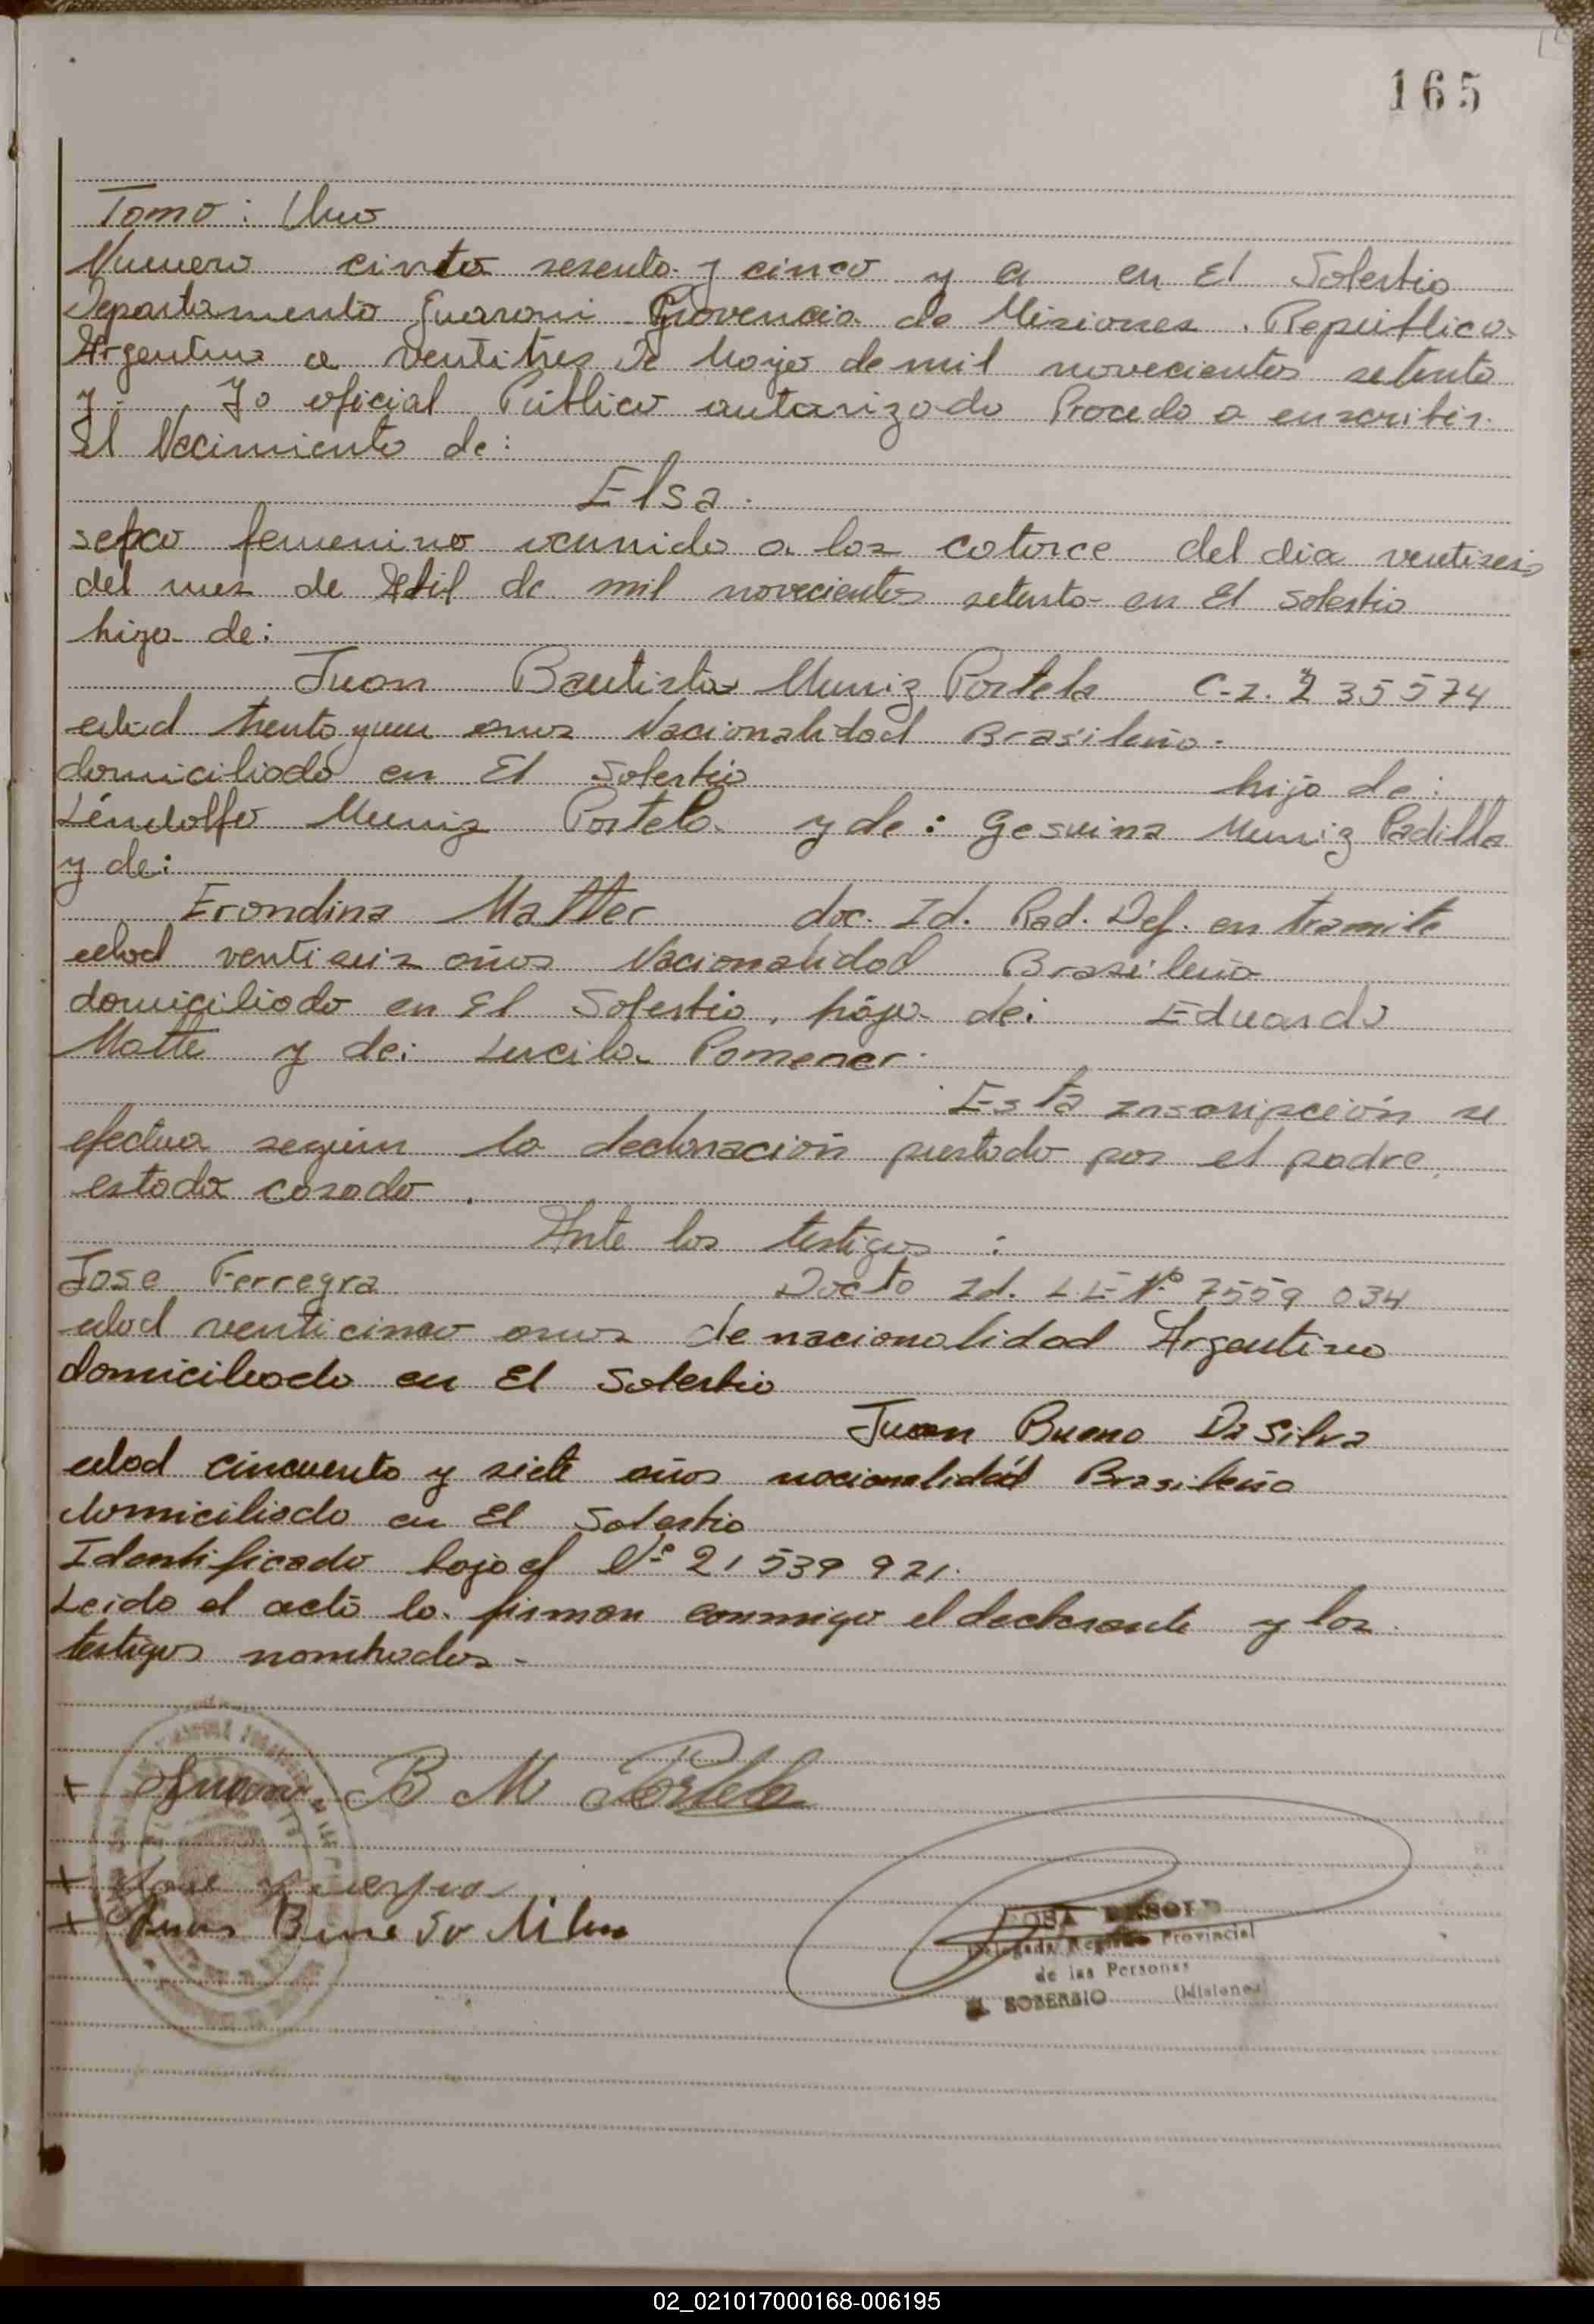 165
Tomo: Uno
Numero ciento sesenta y cinco y a en El Soberbio
Departamento Guarani Provencia de Misiones. República
Argentina a ventitres de Mayo de mil novecientos setenta
y. Yo oficial Público autorizado Procedo a enscribir.
El Nacimiento de:
Elsa.
sexo femenino ocurrido a las catorce del dia ventiseis
del mes de Abril de mil novecientos setenta en El Soberbio
hija de:
Juan Bautista Muniz Portela C.I. 235574
edad trenta y un anos Nacionalidad Brasileño.
domiciliado en El Soberbio hijo de:
Léndolfo Muniz Portela y de: Gesuina Muniz Padilla
y de:
Erondina Matter doc. Id. Rad. Def. en tramite
edad ventiseis años Nacionalidad Brasileña
domiciliado en El Soberbio, hija de: Eduardo
Matte y de: Lucila Pomener.
Esta inscripción se
efectua según la declaración prestado por el padre,
estado casado.
Ante los testigos:
Jose Ferregra Docto Id. L.E Nº 7559 034
edad venticinco anos de nacionalidad Argentino
domiciliado en El Soberbio
Juan Bueno Da Silva
edad cincuenta y siete años nacionalidad Brasileño
domiciliado en El Soberbio
Identificado bajo el Nº 21 539 921.
Leido el acto la firman conmigo el declarante y los
testigos nombrados-
+ Juan B M Portela
+ Jose
+ Juan
ROSA
Delegada Registro Provincial
de las Personas
EL SOBERBIO (Misiones)
02_021017000168-006195